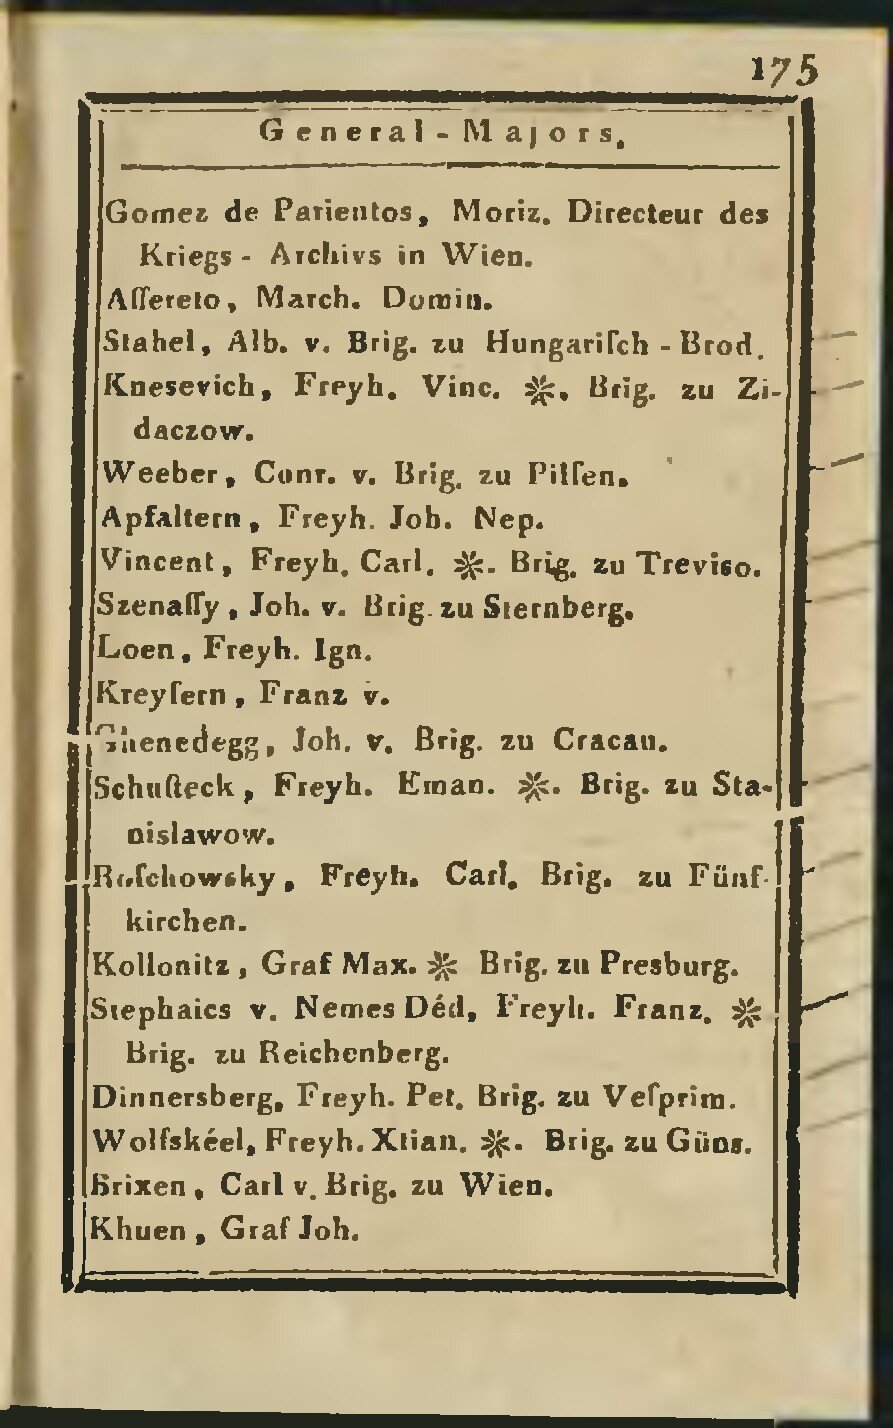 175
General-Majors.
Gomez de Parientos, Moriz. Directeur des
Kriegs- Archivs in Wien.
Aſſereto, March. Domin.
Stahel, Alb. v. Brig. zu Hungariſch-Brod.
Knesevich, Freyh. Vinc. ❋. Brig. zu Zi-
daczow.
Weeber, Conr. v. Brig. zu Pilſen.
Apfaltern, Freyh. Joh. Nep.
Vincent, Freyh. Carl. ❋. Brig. zu Treviso.
Szenaſſy, Joh. v. Brig. zu Sternberg.
Loen, Freyh. Ign.
Kreyſern, Franz v.
Ghenedegg, Joh. v. Brig. zu Cracau.
Schuſteck, Freyh. Eman. ❋. Brig. zu Sta-
nislawow.
Roſchowsky, Freyh. Carl. Brig. zu Fünf-
kirchen.
Kollonitz, Graf Max. ❋ Brig. zu Presburg.
Stephaics v. Nemes Déd, Freyh. Franz. ❋
Brig. zu Reichenberg.
Dinnersberg, Freyh. Pet. Brig. zu Veſprim.
Wolfskéel, Freyh. Xtian. ❋. Brig. zu Güns.
Brixen, Carl v. Brig. zu Wien.
Khuen, Graf Joh.